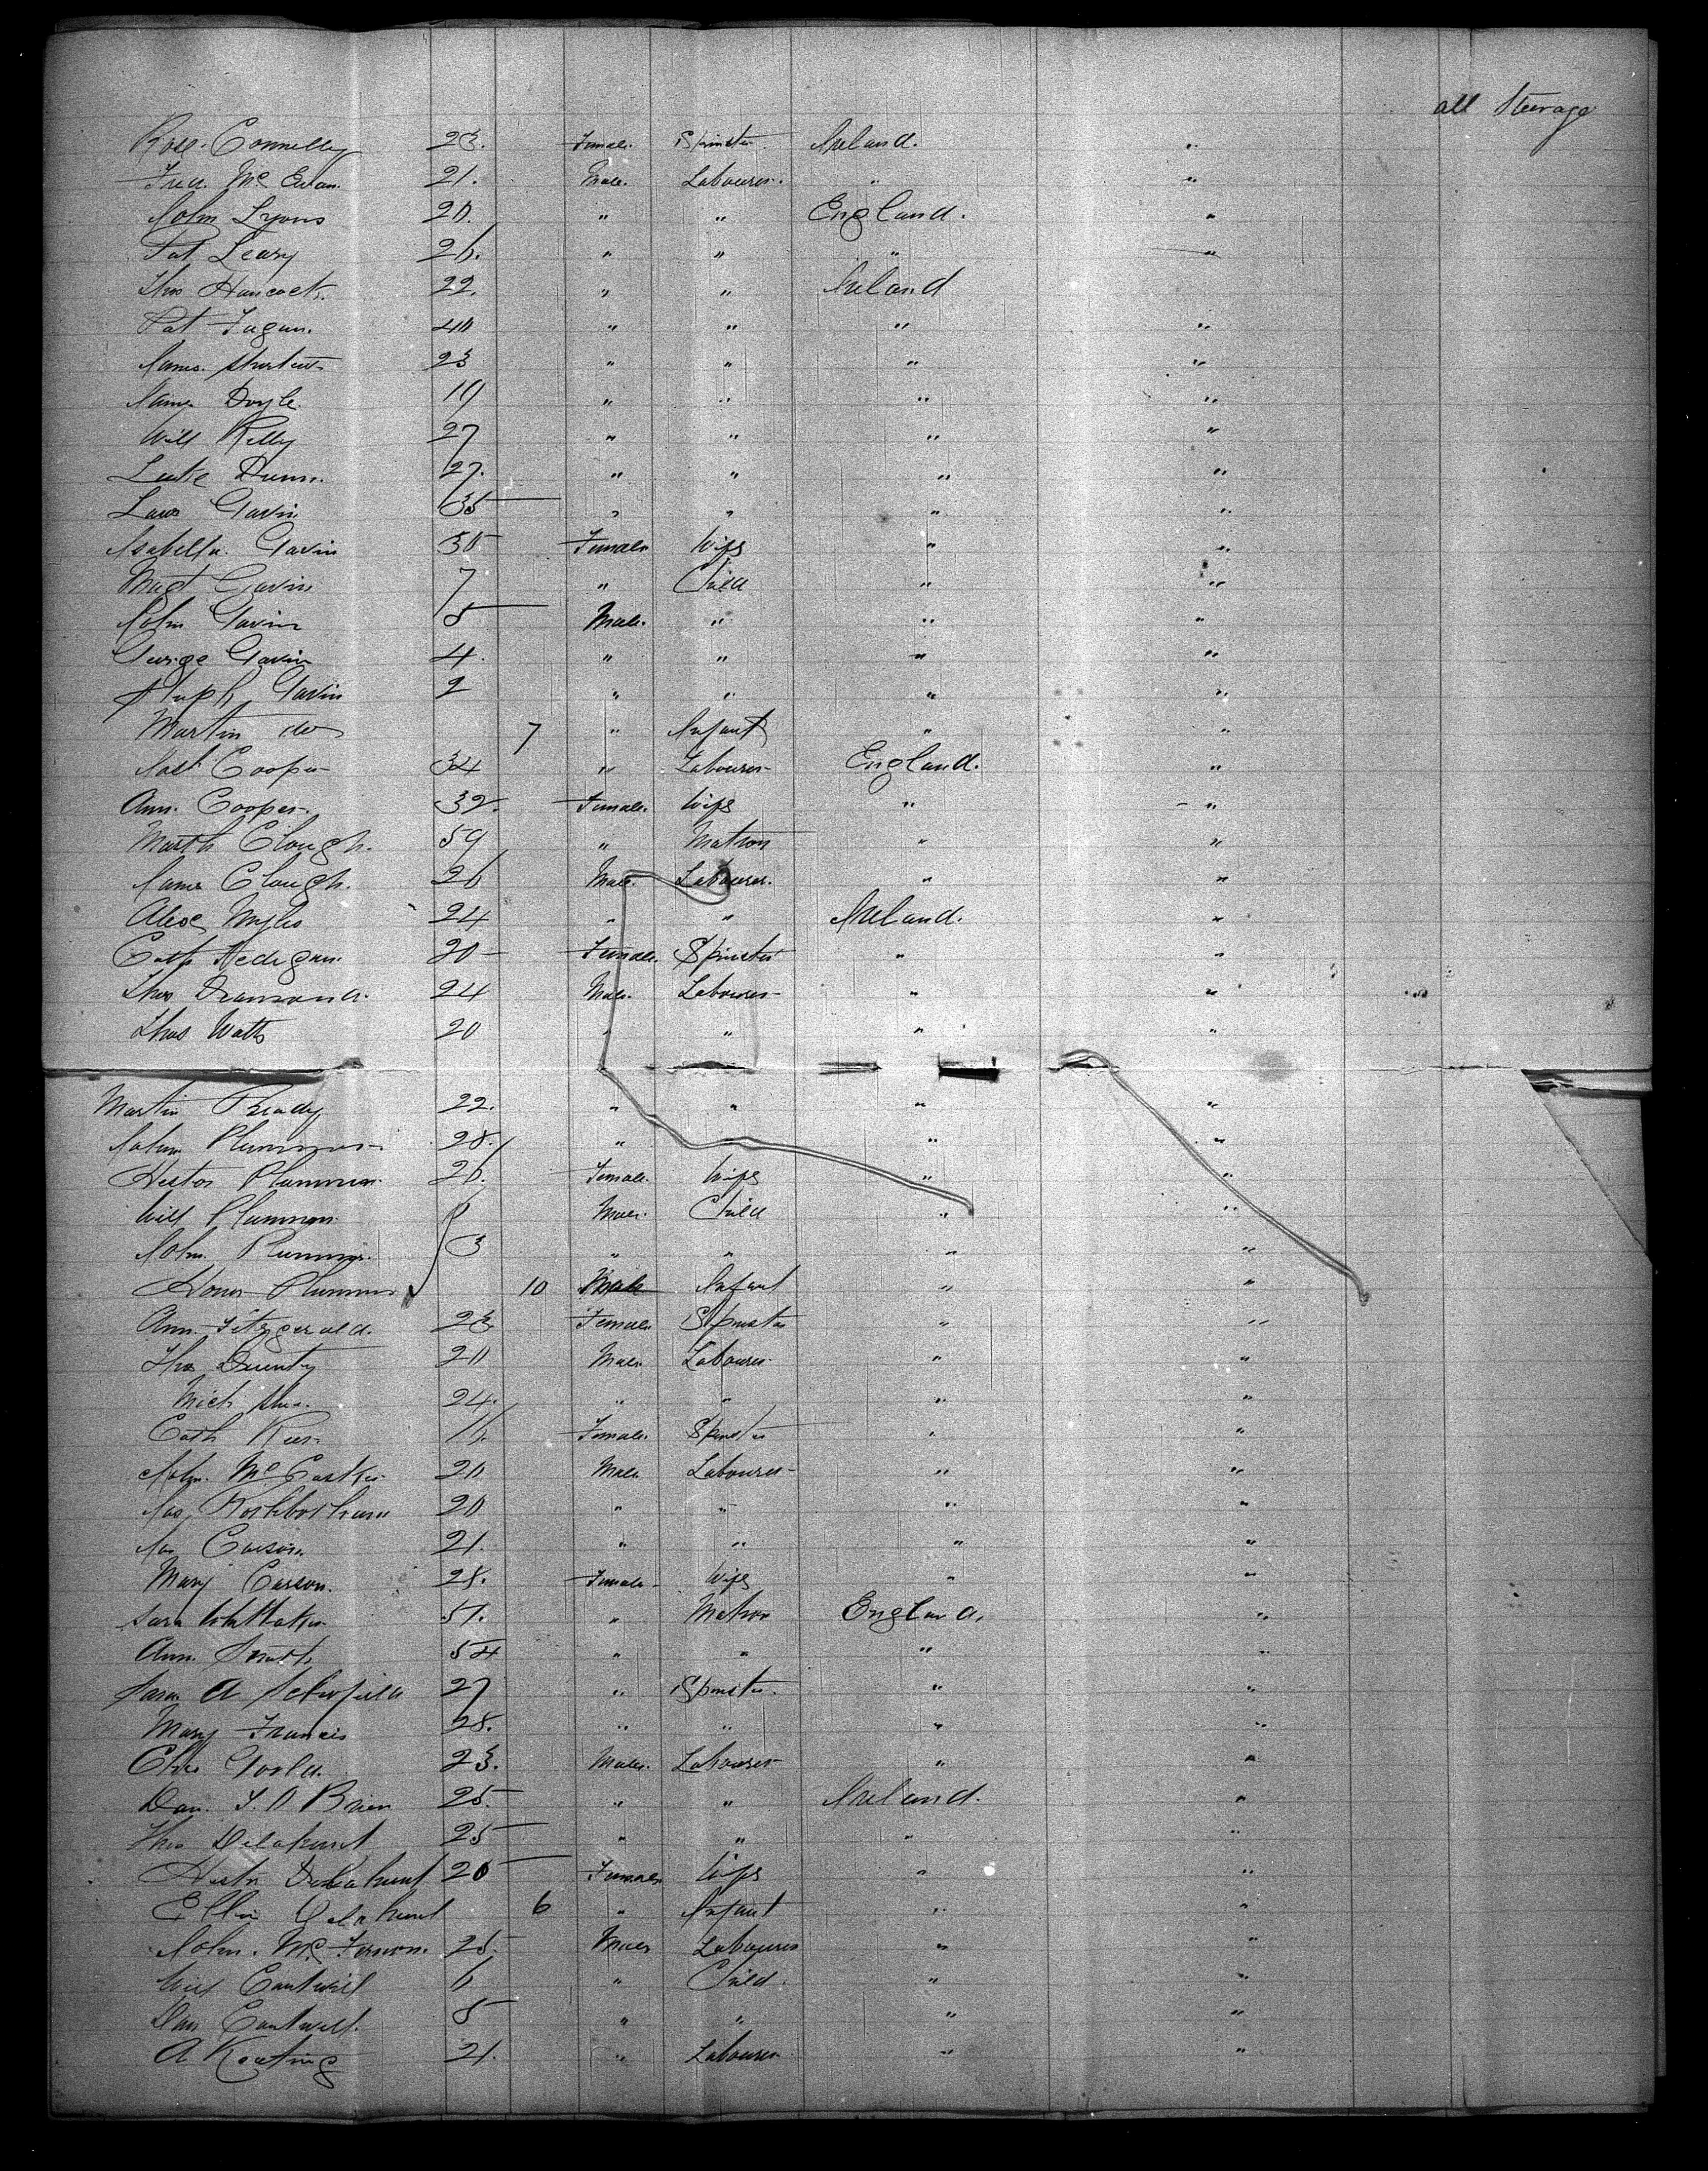 all Steerage
Rose Connelly 23. Female Spinster Ireland. "
Fred. Mc Ewan. 21. Male. Labourer. " "
John Lyons 20. " " England. "
Pat Leary 26. " " " "
Thos Hancock. 22. " " Ireland
Pat Fagan. 40 " " " "
James 23 " " " "
James Doyle. 19 " " " "
Will Kelly 27 " " " "
Luke Dunn. 27. " " " "
Laws Gavin 35 " " " "
Isabella. Gavin 30 Female Wife " "
Magt Gavin 7 " Child " "
John Gavin 5 Male. " " "
George Gavin 4. " " " "
Gavin 2 " " " "
Martin do 7 " Infant " "
Cooper 34 " Labourer England. "
Ann. Cooper. 32. Female. Wife " "
Marth Clough. 59 " Matron " "
James Clough. 26 Male. Labourer. " "
Alex Myles 24 " " Ireland. "
Cath Hedigan. 20 Female. Spinster " "
Thos 24 Male. Labourer " "
Thos Watts 20 " " " "
Martin Brady 22. " " " "
John Plummer 28. " " " "
Hester Plummer. 26. Female. Wife " "
Will Plummer. Male. Child " "
John. Plummer. 3 " " " "
Plummer 10 Male Infant " "
Ann. Fitzgerald. 23 Female Spinster " "
Thos 20 Male Labourer " "
Mich Shea. 24. " " " "
Cath 16. Female. Spinster " "
John. Mc 20 Male Labourer " "
Jas 20 " " " "
Jas Carson. 21. " " " "
Mary Carson. 28. Female Wife " "
Sara Whittaker 51. " Matron England. "
Ann. Smith 54 " " " "
Sara A Schofield 27 " Spinster. " "
Mary Francis 28. " " " "
Chs Gould. 23. Male. Labourer " "
Dan. J. O Brien 25. " " Ireland. "
Thos Delahunt 25 " " " "
Hester Delahunt 26 Female Wife " "
Ellen Delahunt 6 " Infant " "
John. Mc 25. Male Labourer " "
Will Cantwell 6 " Child. " "
Cantwell. 5 " " " "
A Keating 21. " Labourer " "